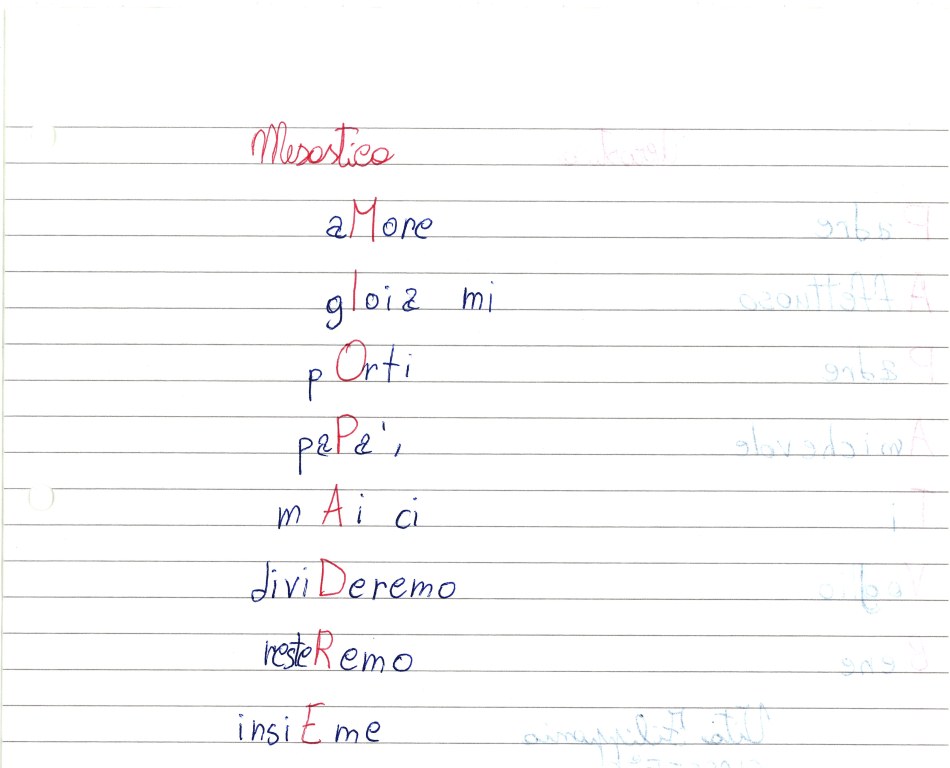 Mesostico
aMore
gIoia mi
pOrti
paPa',
mAi ci
diviDeremo
resteRemo
insiEme